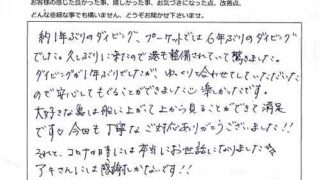 お客様の感じた良かった事、嬉しかった事、お気づきになった点、改善点、
どんな些細な事でも構いません、どうぞお聞かせ下さいませ。
約1年ぶりのダイビング、プーケットでは6年ぶりのダイビング
でした。久しぶりに来たので港も整備されていて驚きました。
ダイビングが1年ぶりでしたが、ゆっくり合わせてしていただいた
ので安心してもぐることができました。楽しかったです。
大好きな島は船に上がって上から見ることができて満足
です♡今回も丁寧なご対応ありがとうございました!!
それと、コロナの時には本当にお世話になりました☆
アキさんには感謝しかないです!!